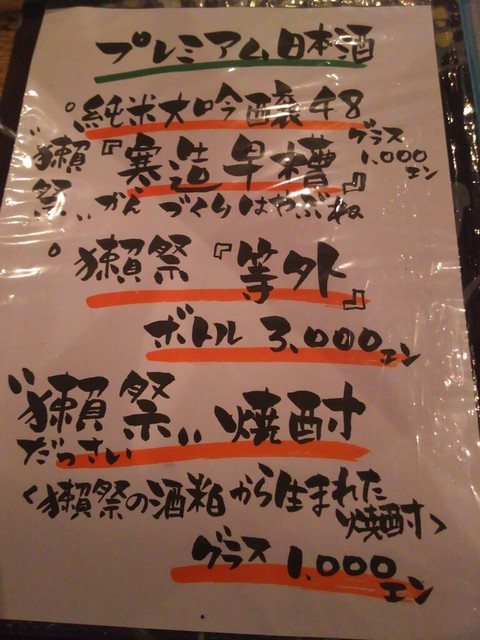 プレミアム日本酒
°純米大吟醸48
"獺祭"『寒造早槽』グラス1,000エン
かんづくりはやぶね
°獺祭『等外』
ボトル 3,000エン
"獺祭"焼酎
だっさい
<獺祭の酒粕から生まれた
焼酎>
グラス 1,000エン